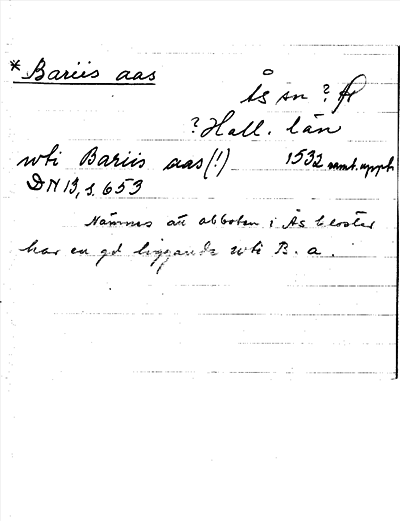 * Bariis aas
Ås sn ?
? Hall. län
wti Bariis aas (!) 1532 samt. uppt.
DN 13, s. 653
Nämnes att abboten i Ås kloster
har en gd liggande wti B. a.